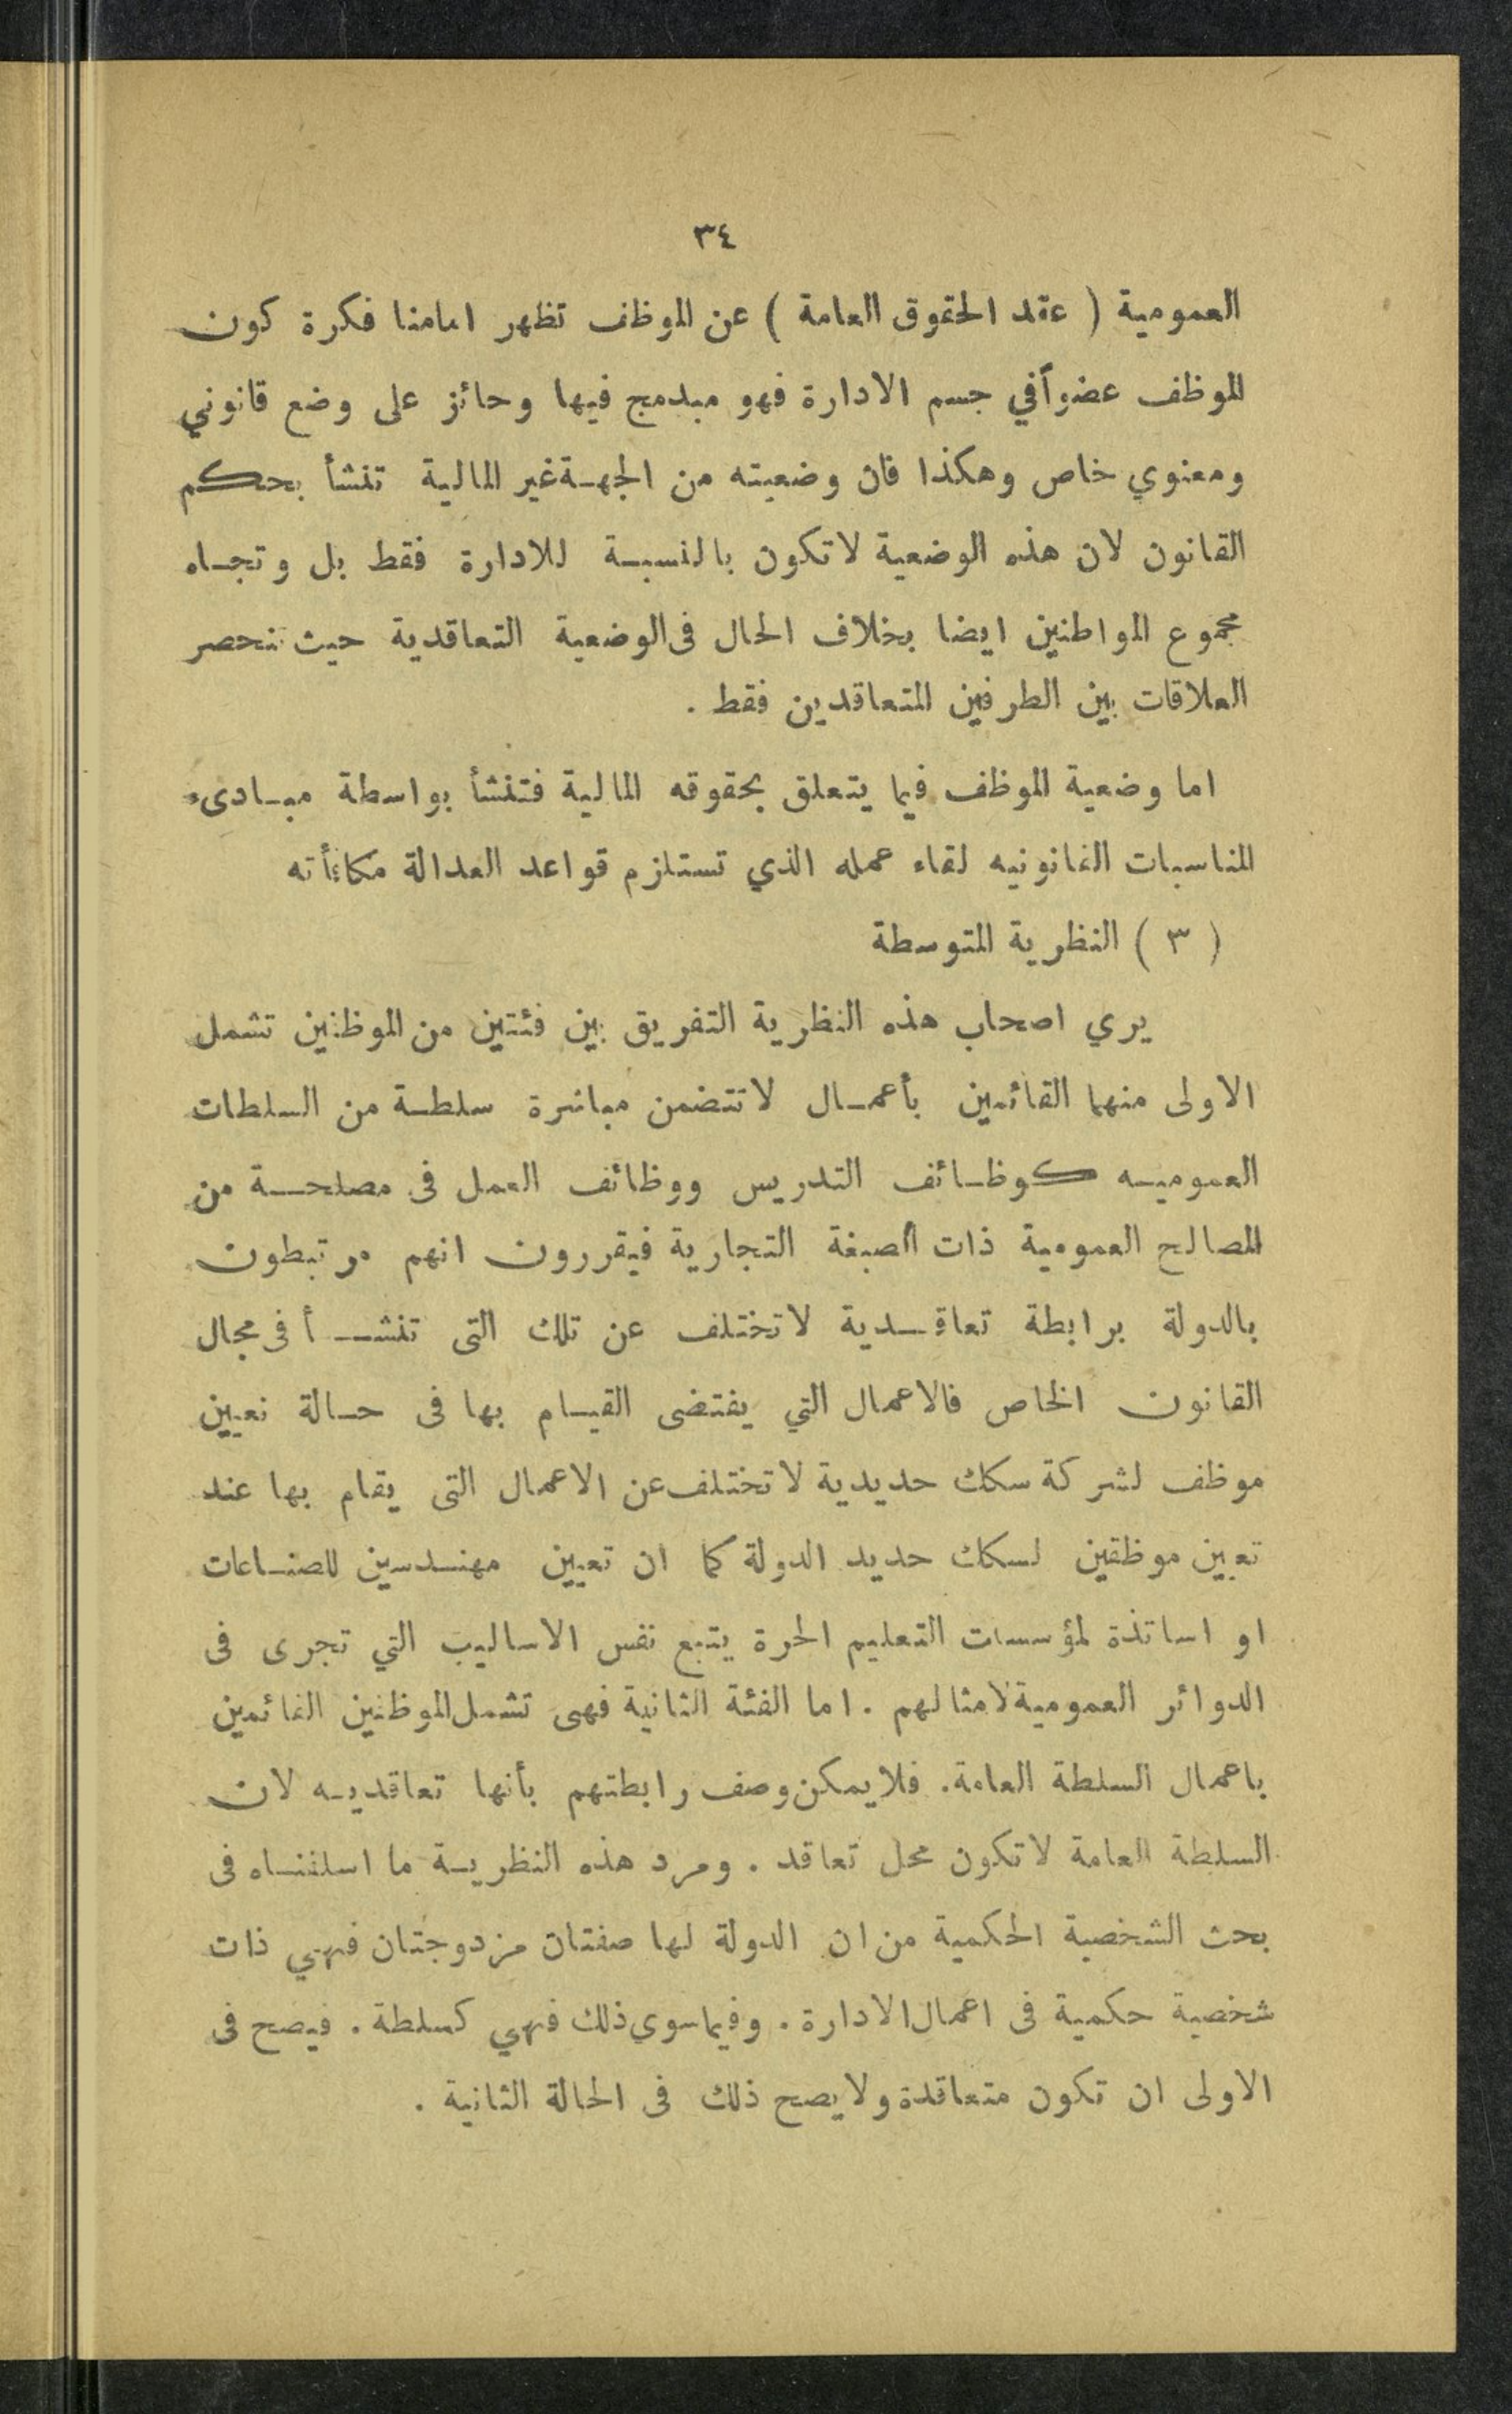 ٣٤
العمومية ( عقد الحقوق العامة ) عن الموظف تظهر امامنا فكرة كون
الموظف عضواً في جسم الادارة فهو مبدمج فيها وحائز على وضع قانوني
ومعنوي خاص وهكذا فان وضعيته من الجهة غير المالية تنشأ بحكم
القانون لان هذه الوضعية لا تكون بالنسبة للادارة فقط بل وتجاه
مجموع المواطنين ايضا بخلاف الحال في الوضعية التعاقدية حيث تنحصر
العلاقات بين الطرفين المتعاقدين فقط .
اما وضعية الموظف فيما يتعلق بحقوقه المالية فتنشأ بواسطة مبادىء
المناسبات القانونيه لقاء عمله الذي تستلزم قواعد العدالة مكافأته
( ٣ ) النظرية المتوسطة
يري اصحاب هذه النظرية التفريق بين فئتين من الموظفين تشمل
الاولى منهما القائمين بأعمال لا تتضمن مباشرة سلطة من السلطات
العموميه كوظائف التدريس ووظائف العمل في مصلحة من
المصالح العمومية ذات الصبغة التجارية فيقررون انهم مرتبطون
بالدولة برابطة تعاقدية لا تختلف عن تلك التى تنشأ فى مجال
القانون الخاص فالاعمال التي يقتضى القيام بها فى حالة تعيين
موظف لشركة سكك حديدية لا تختلف عن الاعمال التى يقام بها عند
تعيين موظفين لسكك حديد الدولة كما ان تعيين مهندسين للصناعات
او اساتذة لمؤسسات التعليم الحرة يتبع نفس الاساليب التي تجرى فى
الدوائر العمومية لامثالهم . اما الفئة الثانية فهى تشمل الموظفين القائمين
باعمال السلطة العامة . فلا يمكن وصف رابطتهم بأنها تعاقديه لان
السلطة العامة لا تكون محل تعاقد . ومرد هذه النظرية ما اسلفناه فى
بحث الشخصية الحكمية من ان الدولة لها صفتان مزدوجتان فهي ذات
شخصية حكمية فى اعمال الادارة . وفيما سوى ذلك فهي كسلطة . فيصح فى
الاولى ان تكون متعاقدة ولا يصح ذلك فى الحالة الثانية .